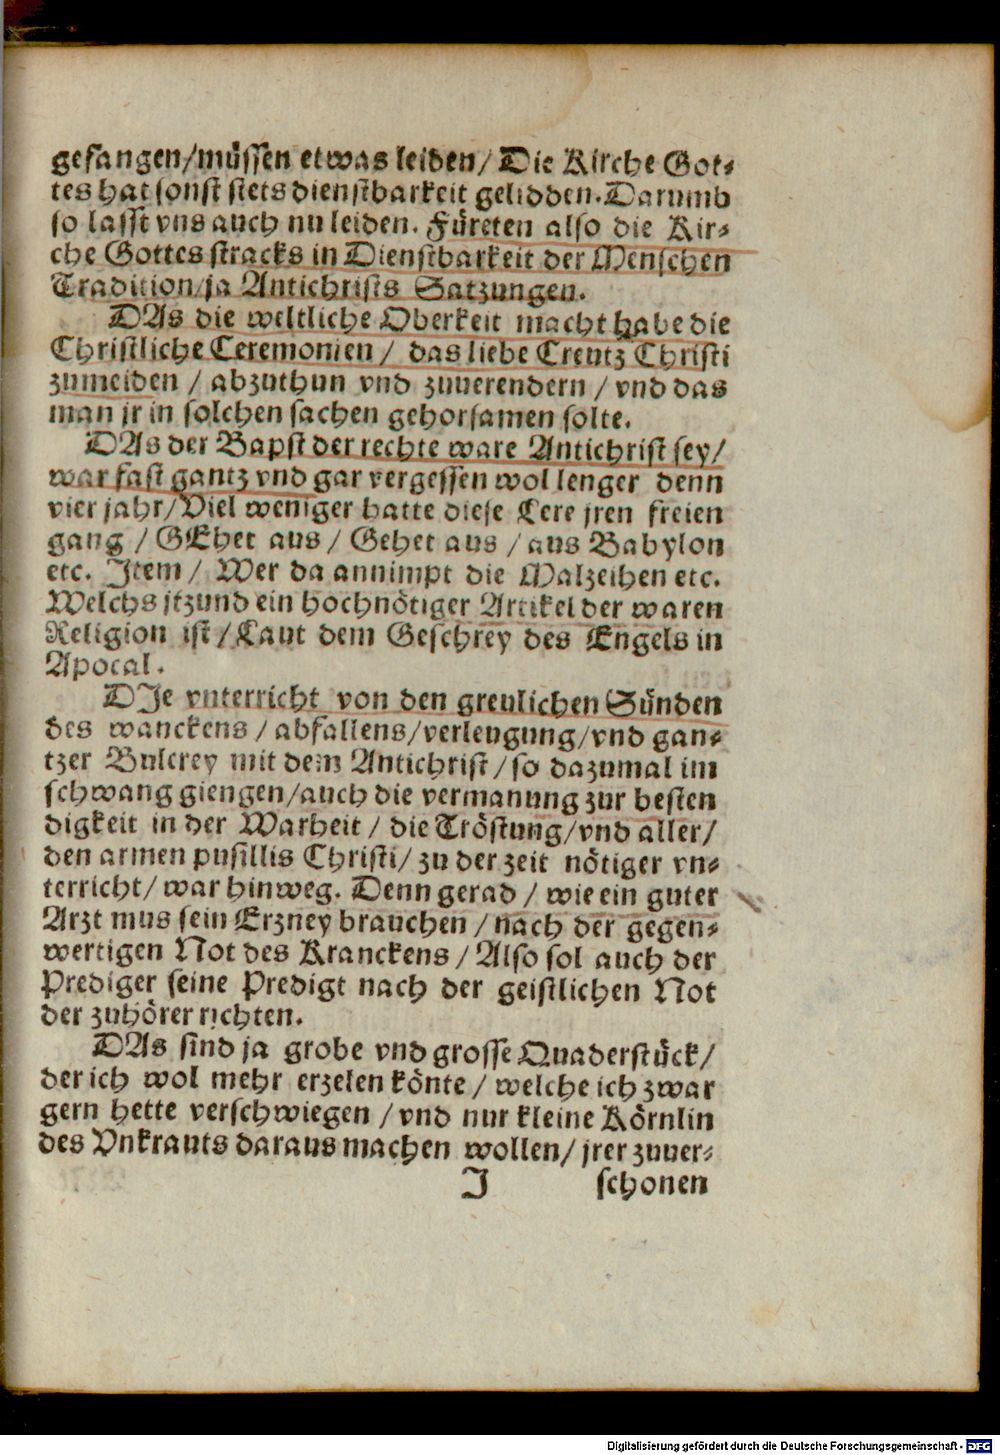 gefangen/müssen etwas leiden/ Die Kirche Got-
tes hat sonst stets dienstbarkeit gelidden. Darumb
so lasst vns auch nu leiden. Füreten also die Kir-
che Gottes stracks in Dienstbarkeit der Menschen
Tradition/ja Antichrists Satzungen.
DAs die weltliche Oberkeit macht habe die
Christliche Ceremonien / das liebe Creutz Christi
zumeiden / abzuthun vnd zuuerendern / vnd das
man jr in solchen sachen gehorsamen solte.
DAs der Bapst der rechte ware Antichrist sey/
war fast gantz vnd gar vergessen wol lenger denn
vier jahr/Viel weniger hatte diese Lere jren freien
gang / GEhet aus / Gehet aus / aus Babylon
etc. Item / Wer da annimpt die Malzeihen etc.
Welchs jtzund ein hochnötiger Artikel der waren
Religion ist / Laut dem Geschrey des Engels in
Apocal.
DIe vnterricht von den greulichen Sünden
des wanckens / abfallens/verleugung/vnd gan-
tzer Bulerey mit dem Antichrist / so dazumal im
schwang giengen/auch die vermanung zur besten
digkeit in der Warheit / die Tröstung/vnd aller/
den armen pusillis Christi/ zu der zeit nötiger vn-
terricht/ war hinweg. Denn gerad / wie ein guter
Arzt mus sein Erzney brauchen / nach der gegen-
wertigen Not des Kranckens / Also sol auch der
Prediger seine Predigt nach der geistlichen Not
der zuhörer richten.
DAs sind ja grobe vnd grosse Quaderstück/
der ich wol mehr erzelen könte / welche ich zwar
gern hette verschwiegen / vnd nur kleine Körnlin
des Vnkrauts daraus machen wollen/ jrer zuuer-
J schonen
Digitalisierung gefördert durch die Deutsche Forschungsgemeinschaft - DFG